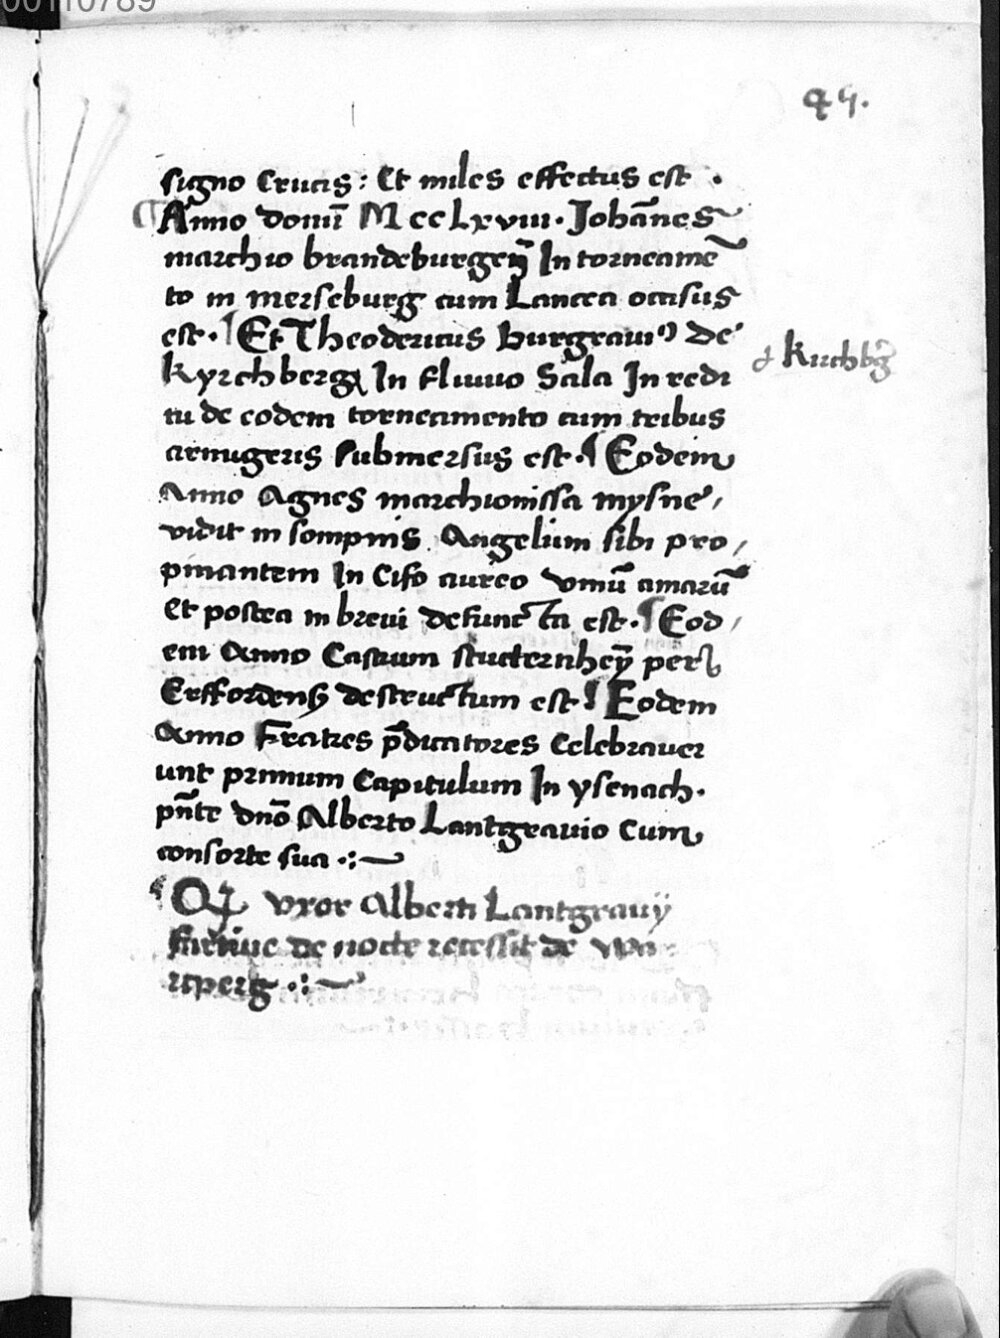 00110789
45.
signo Crucis : Et miles effectus est .
¶ Anno domī M ccLxviii . Johānes
marchio brandeburgeñ In torneamē
to in merseburg cum Lancea occisus
est . ¶ Et Theodericus burgraui⁹ de
kyrchberg In fluuio Sala In redi
tu de eodem torneamento cum tribus
armigeris submersus est . ¶ Eodem
Anno Agnes marchionissa mysne ,
vidit in sompnis Angelum sibi pro ,
pinantem In Cifo aureo vinū amarū
Et postea in breui defuncta est . ¶ Eod ,
em Anno Castrum stuternheÿ per
Erffordenses destructum est ¶ Eodem
Anno Fratres p̄dicatores Celebrauer
unt primum Capitulum In ysenach .
pn̄te dn̄o Alberto Lantgrauio Cum
consorte sua .:~
¶ uxor Alberti Lantgrauÿ
furtiue de nocte recessit de wa
rtperg .:~
kirchbg̃